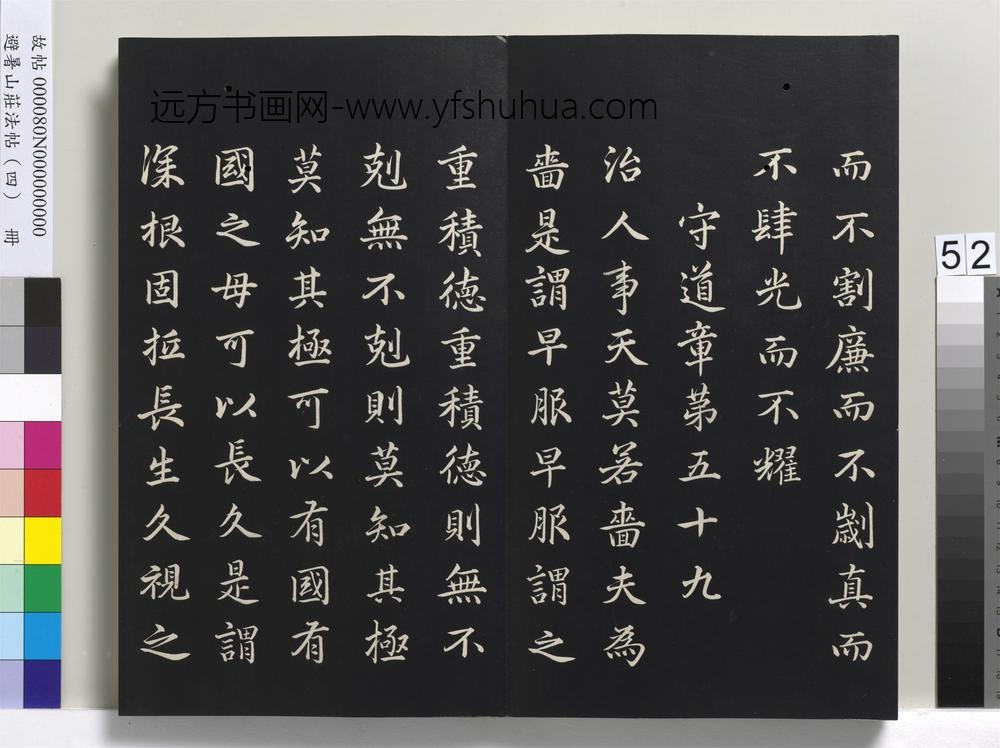 而不割廉而不劌真而
不肆光而不耀
守道章第五十九
治人事天莫若嗇夫為
嗇是謂早服早服謂之
重積德重積德則無不
剋無不剋則莫知其極
莫知其極可以有國有
國之母可以長久是謂
深根固柢長生久視之
远方书画网-www.yfshuhua.com
故帖 000080N000000000
避暑山莊法帖（四） 冊
52